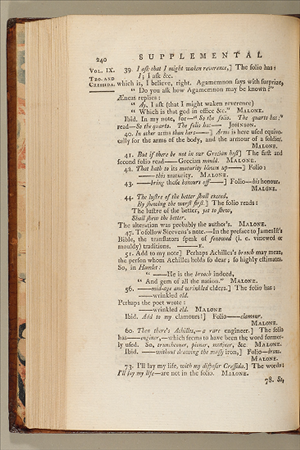 240
SUPPLEMENTAL
VOL. IX.
TRO. AND
CRESSIDA.
39. I ask that I might waken reverence,] The folio has:
I; I ask &c.
which is, I believe, right. Agamemnon says with surprize,
" Do you ask how Agamemnon may be known?"
Æneas replies:
" Ay, I ask (that I might waken reverence)
" Which is that god in office &c." MALONE.
Ibid. In my note, for—" So the folio. The quarto has:"
read—So the quarto. The folio has—— JOHNSON.
40. In other arms than hers——] Arms is here used equivocally
for the arms of the body, and the armour of a soldier.
MALONE.
41. But if there be not in our Grecian host] The first and
second folio read—Grecian mould. MALONE.
42. That hath to its maturity blown up——] Folio:
——this maturity. MALONE.
43. ——bring those honours off——] Folio—his honours.
MALONE.
44. The lustre of the better shall exceed,
By shewing the worst first.] The folio reads:
The lustre of the better, yet to shew,
Shall shew the better.
The alteration was probably the author's. MALONE.
47. To follow Steevens's note.—In the preface to
the translators speak of fenowed (i. e. vinewed or
mouldy) traditions.
51. Add to my note] Perhaps Achilles's brooch may mean,
the person whom Achilles holds so dear; so highly estimates.
So, in Hamlet:
" ——He is the brooch indeed,
" And gem of all the nation." MALONE.
56. ——mid-age and wrinkled elders.] The folio has:
——wrinkled old.
Perhaps the poet wrote:
——wrinkled eld. MALONE
Ibid. Add to my clamours!] Folio—clamour.
MALONE.
60. Then there's Achilles,—a rare engineer.] The folio
has——enginer,—which seems to have been the word formerly
used. So, truncheoner, pioner, mutiner, &c. MALONE.
Ibid. ——without drawing the massy iron,] Folio—irons.
MALONE.
73. I'll lay my life, with my disposer Cressida.] The words:
I'll lay my life—are not in the folio. MALONE.
78. So